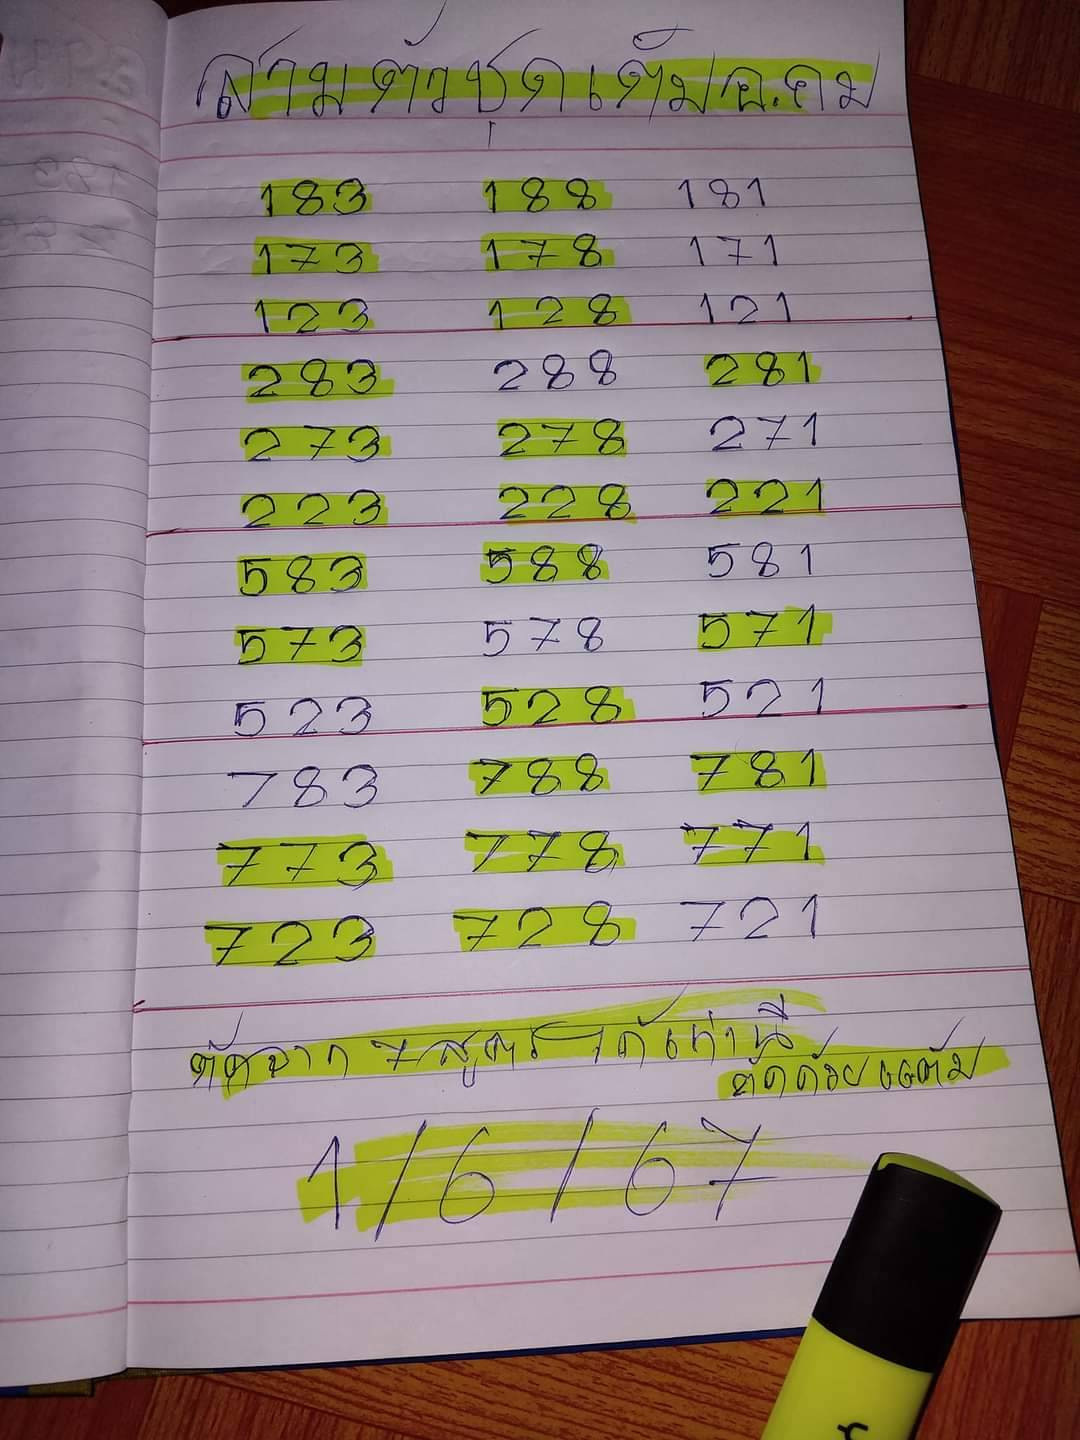 สามตัวชุดเต็ม อ.คม
183 188 181
173 178 171
123 128 121
283 288 281
273 278 271
223 228 221
583 588 581
573 578 571
523 528 521
783 788 781
773 778 771
723 728 721
ตัดจาก 7 สูตร ได้เท่านี้
ตัดด้วยแต้ม
1/6/67